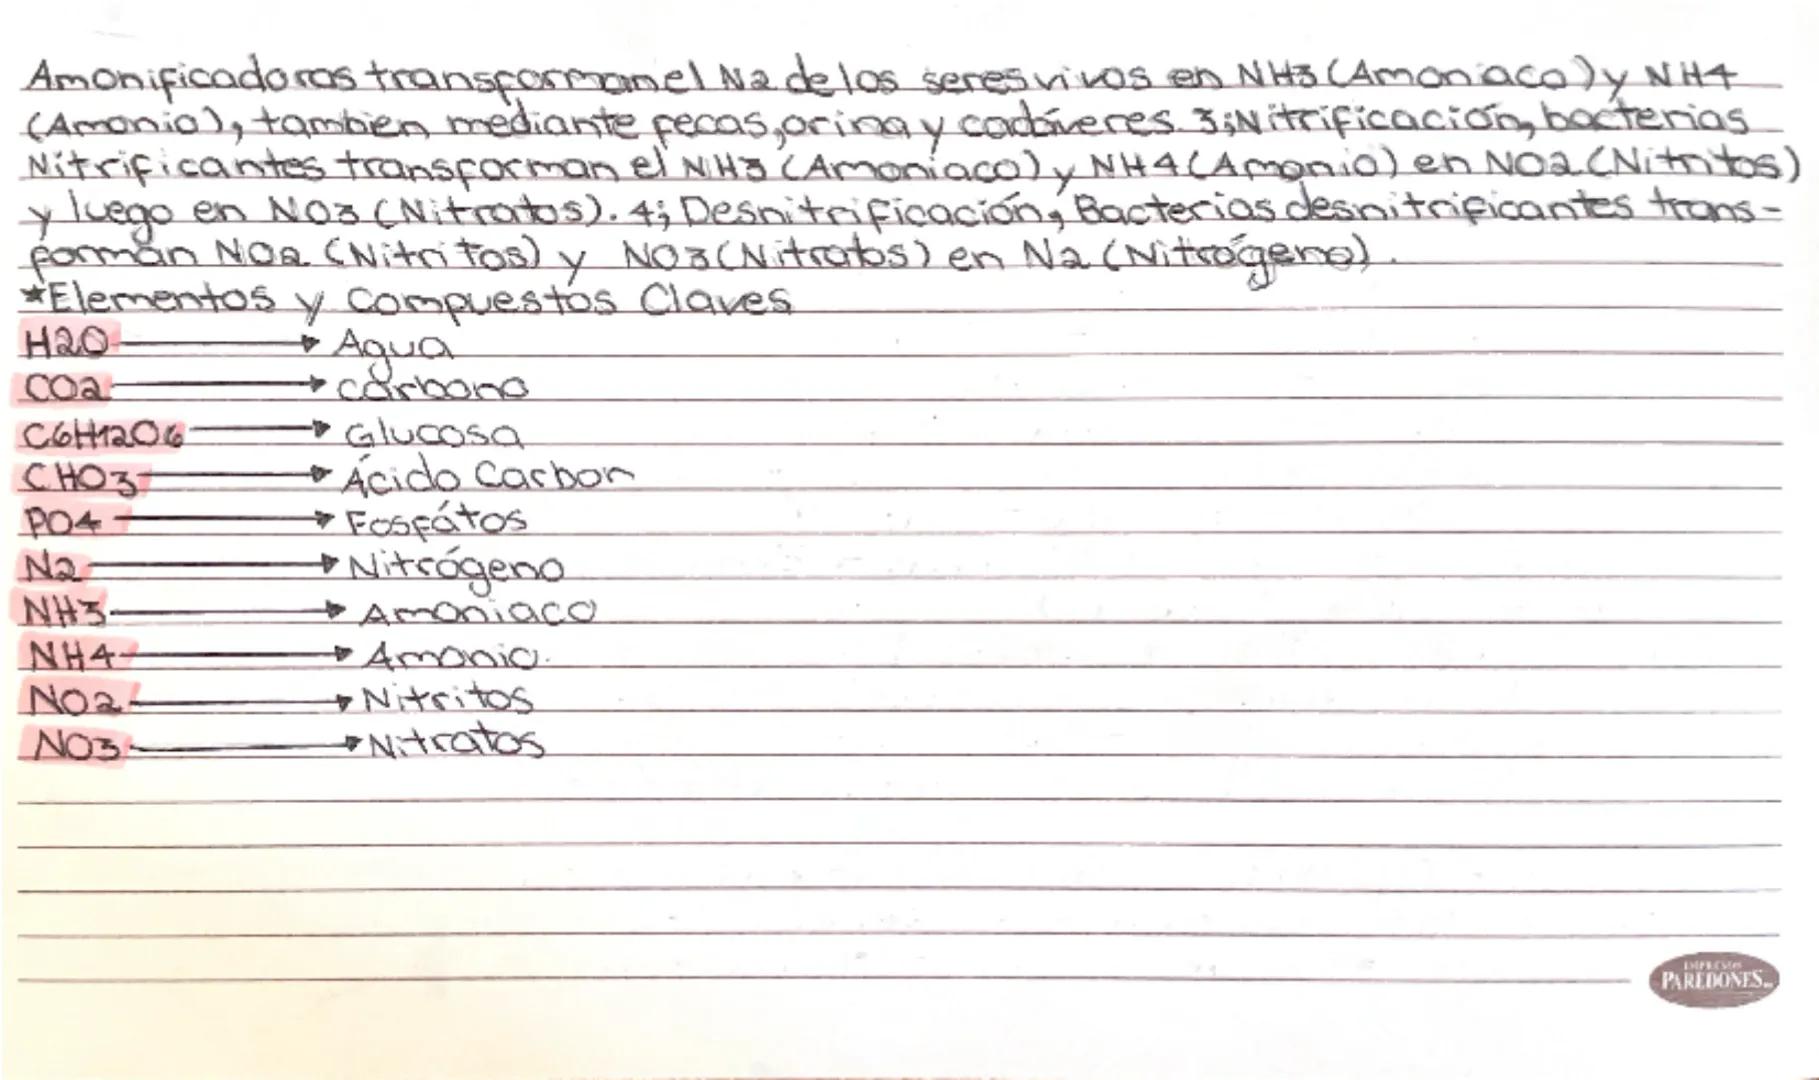 Amonificadoras transforman el N2 de los seres vivos en NH3 (Amoniaco) y NH4
(Amonio), tambien mediante fecas, orina y cadáveres. 3; Nitrificación, bacterias
Nitrificantes transforman el NH3 (Amoníaco) y NH4 (Amonio) en NO2 (Nitritos)
y luego en NO3 (Nitratos). 4; Desnitrificación, Bacterias desnitrificantes trans-
forman NO2 (Nitritos) y NO3 (Nitratos) en N2 (Nitrógeno).
*Elementos y Compuestos Claves
H2O → Agua
CO2 → Carbono
C6H12O6 → Glucosa
CHO3 → Ácido Carbon
PO4 → Fosfátos
N2 → Nitrógeno
NH3 → Amoniaco
NH4 → Amonio.
NO2 → Nitritos
NO3 → Nitratos
IMPRESOS
PAREDONES